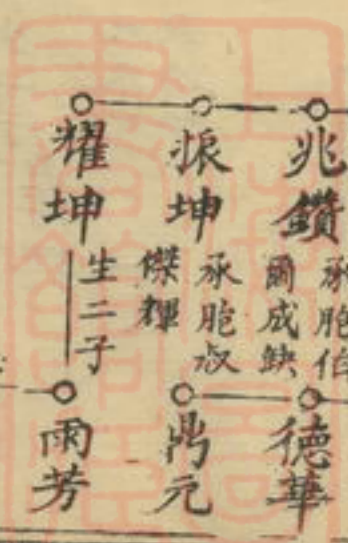 兆鑽
承胞伯
爾成缺
德華
振坤
承胞叔
傑輝
鼎元
耀坤
生二子
雨芳